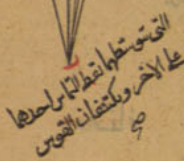 التى توسطها نقط التماس احدهما
على الاخر ويكتنفان القوس
صح